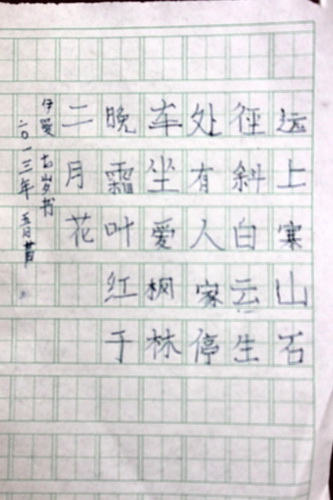 远上寒山石
径斜白云生
处有人家停
车坐爱枫林
晚霜叶红于
二月花
伊爱七岁书
二〇一三年五月